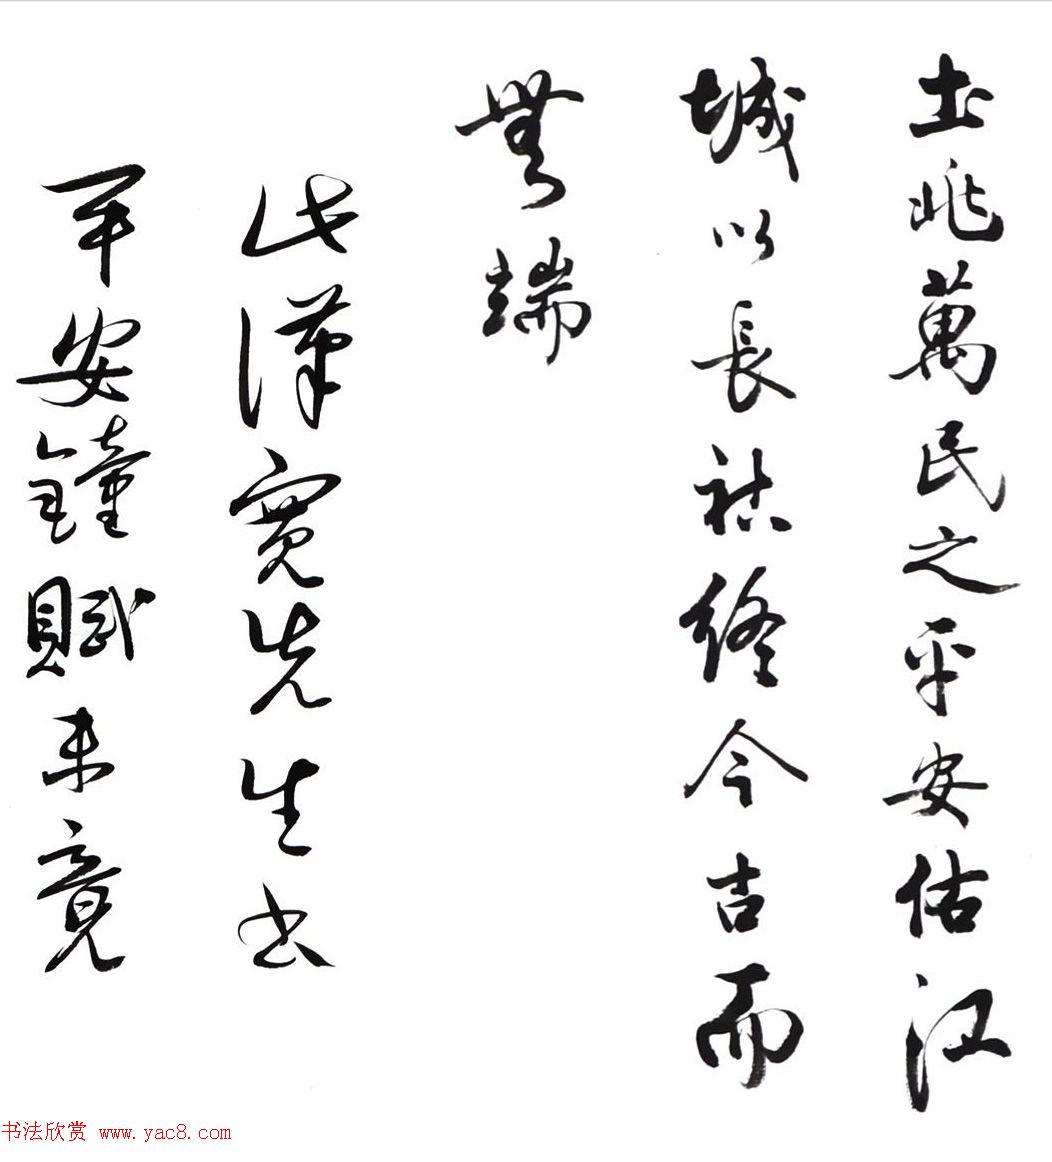 土兆萬民之平安佑江
城以長祜終今吉而
無端
此漢寬先生書
平安鐘賦未竟
书法欣赏 www.yac8.com